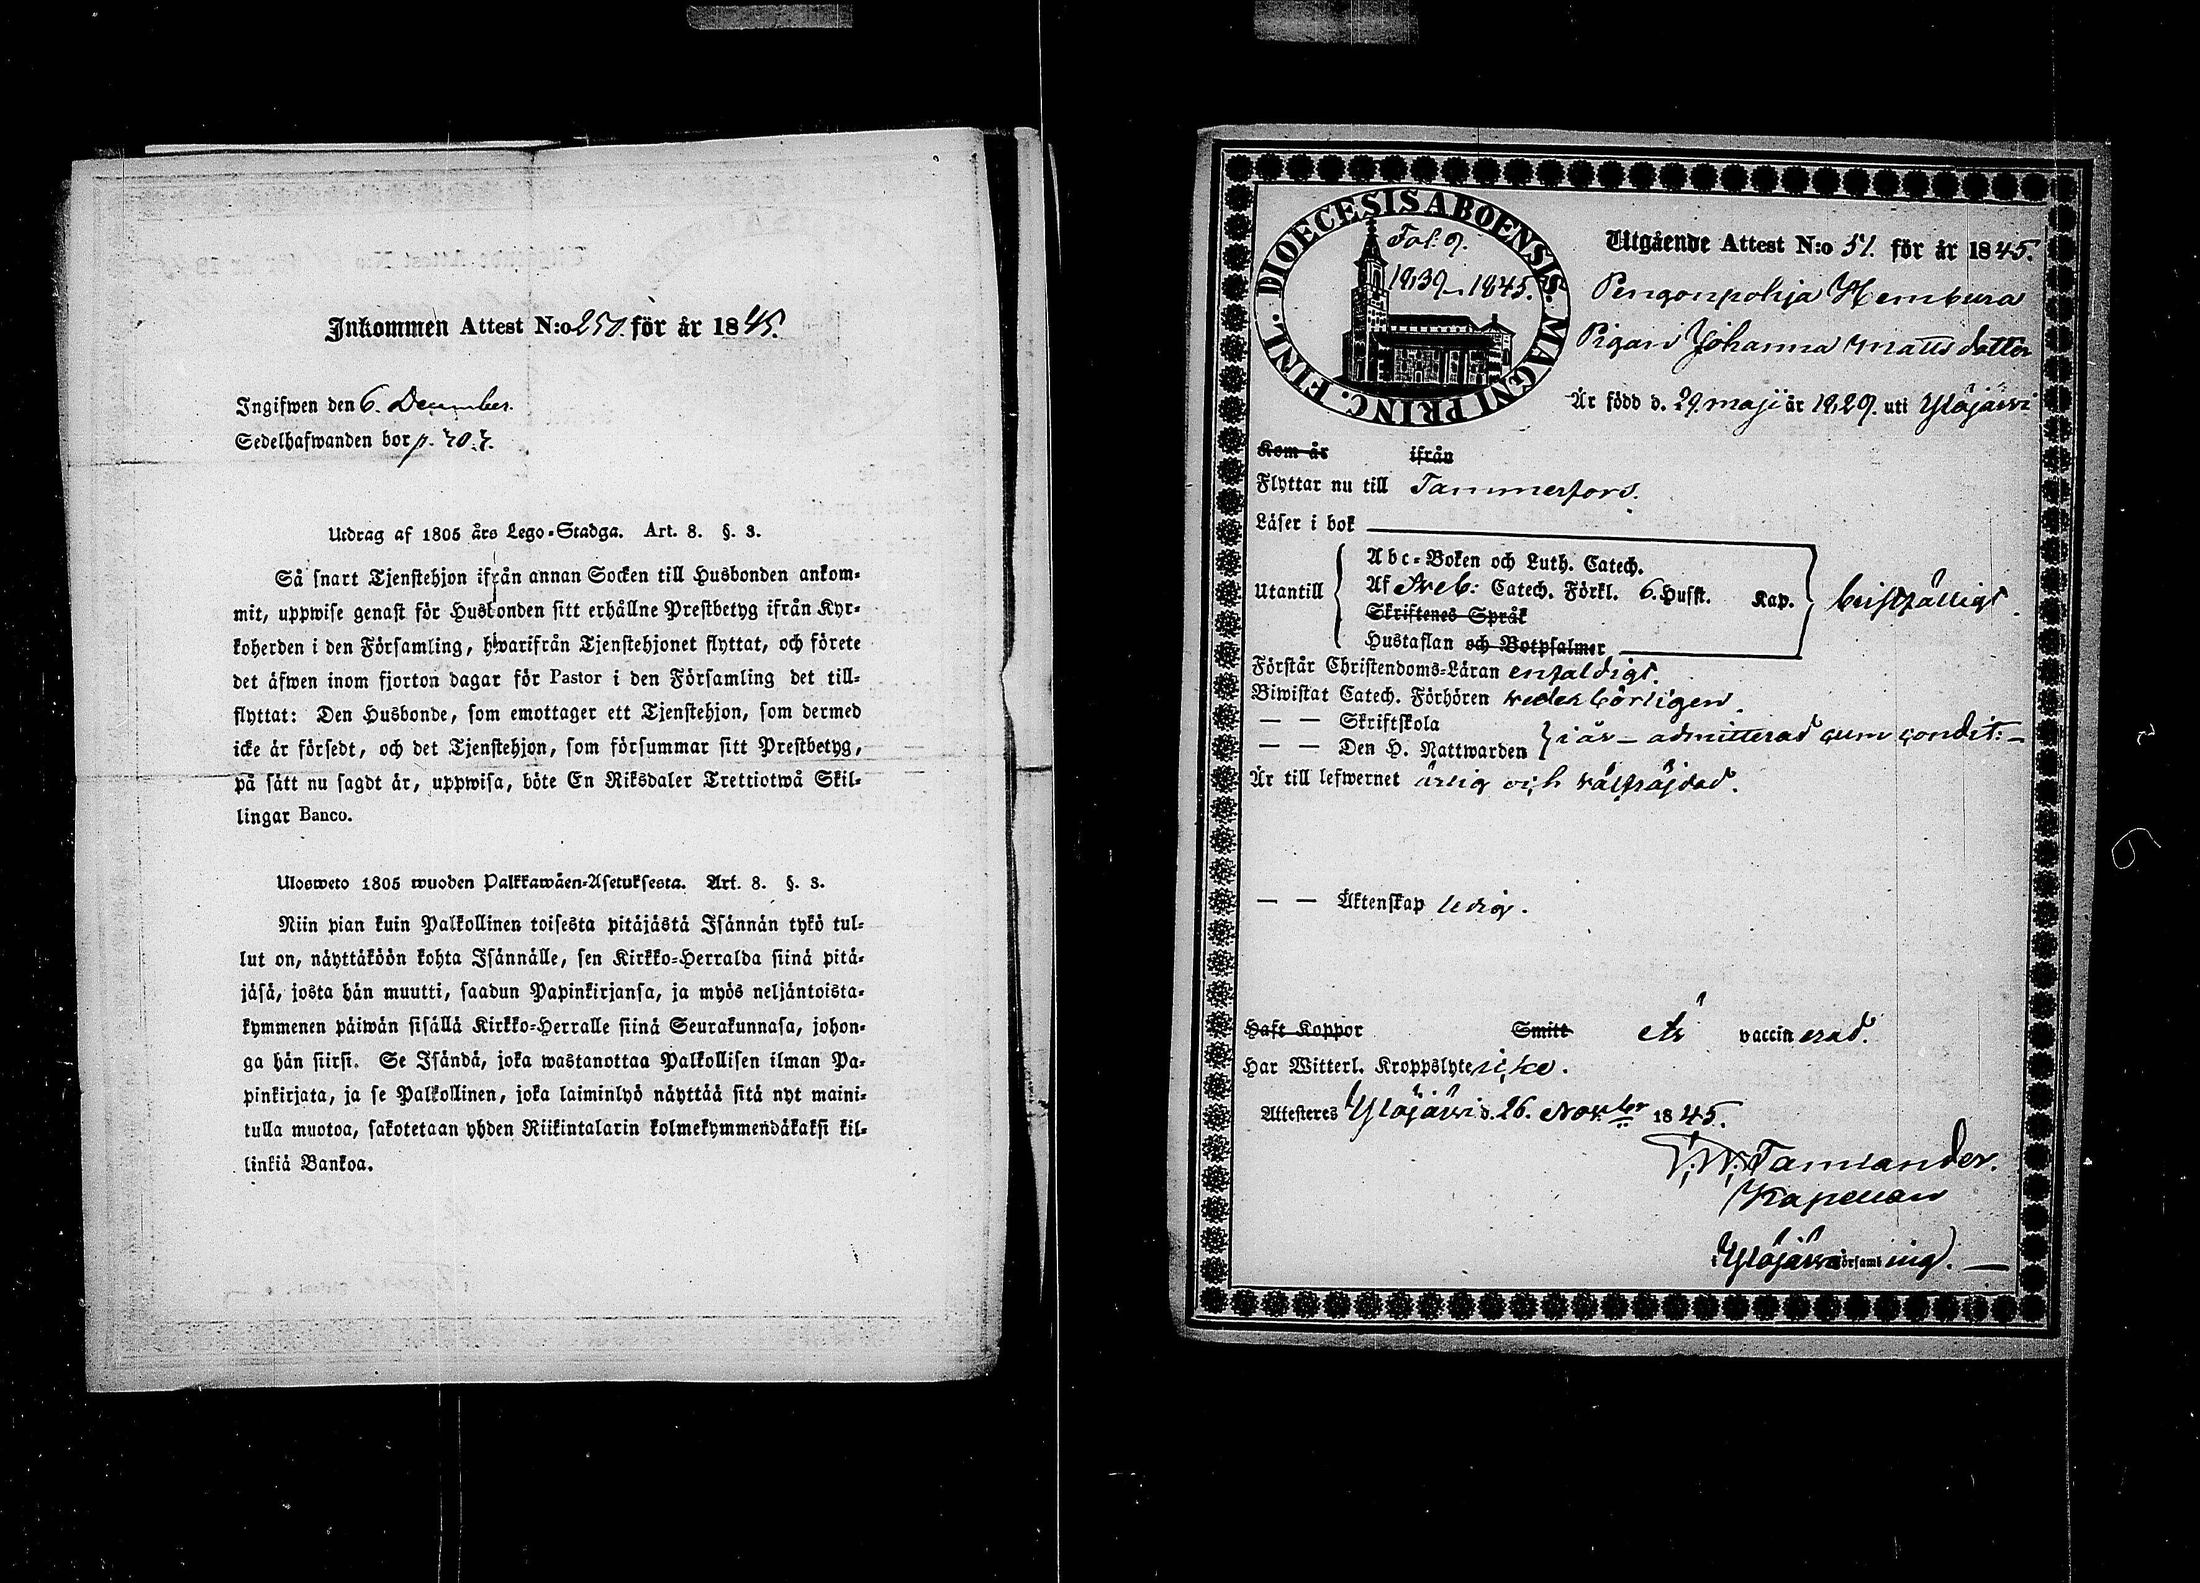 Inkommen Attest N:o 250. för år 1845.
Ingifwen den 6. December.
Sedelhafwanden bor p. 707.
Utdrag af 1805 års Lego-Stadga. Art. 8. §. 3.
Så snart Tjenstehjon ifrån annan Socken till Husbonden ankom-
mit, uppwise genast för Husbonden sitt erhållne Prestbetyg ifrån Kyr-
koherden i den Församling, hwarifrån Tjenstehjonet flyttat, och förete
det äfwen inom fjorton dagar för Pastor i den Församling det till-
flyttat: Den Husbonde, som emottager ett Tjenstehjon, som dermed
icke är försedt, och det Tjenstehjon, som försummar sitt Prestbetyg,
på sätt nu sagdt är, uppwisa, böte En Riksdaler Trettiotwå Skil-
lingar Banco.
Ulosweto 1805 wuoden Palkkawäen-Asetuksesta. Art. 8. §. 3.
Niin pian kuin Palkollinen toisesta pitäjästä Isännän tykö tul-
lut on, näyttäköön kohta Isännälle, sen Kirkko-Herralda siinä pitä-
jäsä, josta hän muutti, saadun Papinkirjansa, ja myös neljäntoista-
kymmenen päiwän sisällä Kirkko-Herralle siinä Seurakunnasa, johon-
ga hän siirsi. Se Isändä, joka wastanottaa Palkollisen ilman Pa-
pinkirjata, ja se Palkollinen, joka laiminlyö näyttää sitä nyt maini-
tulla muotoa, sakotetaan yhden Riikintalarin kolmekymmendäkaksi kil-
linkiä Bankoa.
DIOECESIS ABOENSIS. MAGNI PRINC. FINL.
Fol. 9.
1839-1845.
Utgående Attest N:o 51. för år 1845.
Pengonpohja Hembura
Pigan Johanna Mattsdotter
Är född d. 29 maji år 1829. uti Ylöjärvi
Kom år ifrån
Flyttar nu till Tammerfors.
Läser i bok
Utantill
Abc-Boken och Luth. Catech.
Af Sveb: Catech. Förkl. 6. Hufst. Kap.
Skriftenes Språk
Hustaflan och Botpsalmer
beifalligt.
Förstår Christendoms-Läran enfaldigt.
Biwistat Catech. Förhören wederbörligen.
— — Skriftskola
— — Den H. Nattwarden
i år - admitterad cum condit: -
Är till lefwernet ärlig och välfräjdad.
— — Äktenskap ledig.
Haft Koppor Smitt är vaccinerad.
Har Witterl. Kroppslyte icke.
Attesteres Ylöjärvi d. 26. Novber 1845.
Tamlander.
Kapellan
i Ylöjärvi församling. —